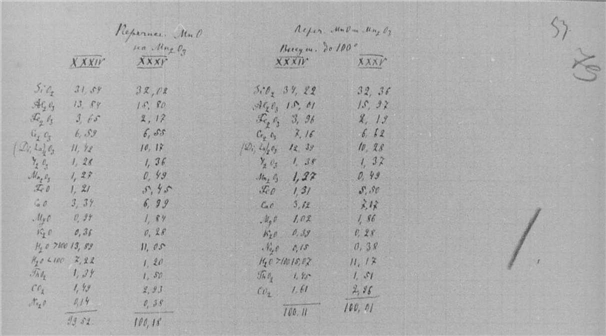 57
Перечисл. MnO
на Mn₂O₃
XXXIV XXXV
SiO₂ 31,59 32,02
Al₂O₃ 13,89 15,80
Fe₂O₃ 3,65 2,17
Ce₂O₃ 6,59 6,55
11,42 10,17
Y₂O₃ 1,28 1,36
Mn₂O₃ 1,27 0,49
FeO 1,21 5,45
CaO 3,34 6,99
MgO 0,94 1,84
K₂O 0,36 0,28
H₂O >100 13,89 11,05
H₂O <100 7,22 1,20
ThO₂ 1,34 1,50
CO₂ 1,49 2,93
Na₂O 0,14 0,38
93.52 100,18
Переч. MnO на Mn₂O₃
до 100°
XXXIV XXXV
SiO₂ 34,22 32,36
Al₂O₃ 15,01 15,97
Fe₂O₃ 3,96 2,19
Ce₂O₃ 7,16 6,62
12,39 10,28
Y₂O₃ 1,38 1,37
Mn₂O₃ 1,27 0,49
FeO 1,31 5,50
CaO 3,62 7,07
MgO 1,02 1,86
K₂O 0,39 0,28
Na₂O 0,15 0,38
H₂O >100 15,07 11,17
ThO₂ 1,45 1,51
CO₂ 1,61 2,96
100.11 100,01